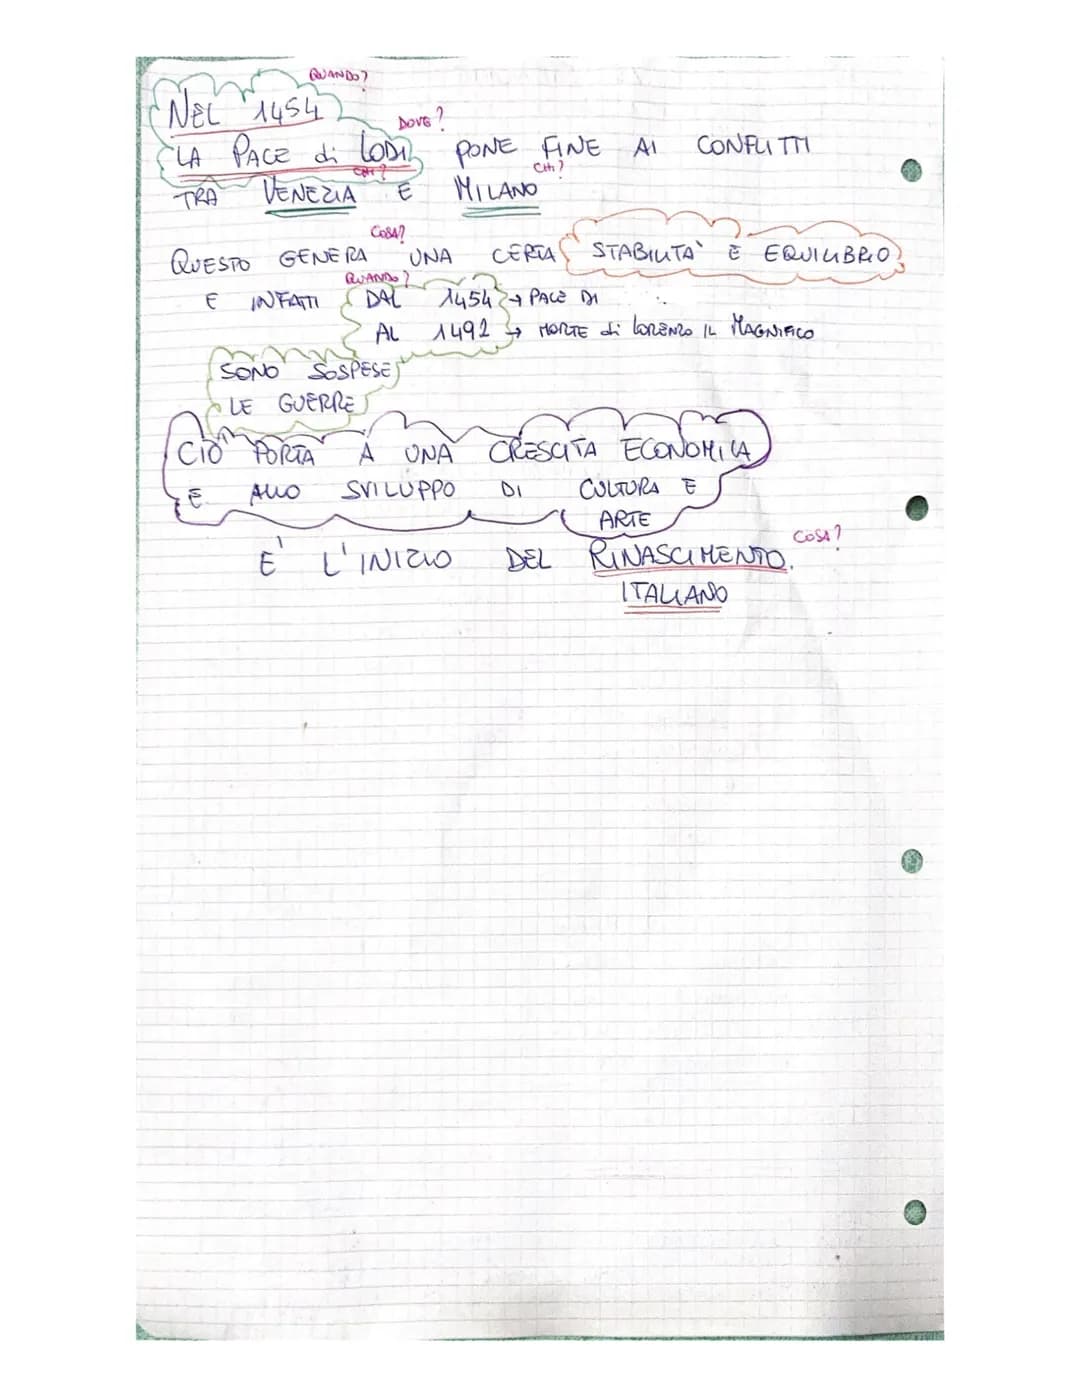 QUANDO?
NEL 1454
DOVE?
LA PACE di LODI PONE FINE AI CONFLITTI
CHI? CHI?
TRA VENEZIA E MILANO
COSA?
QUESTO GENERA UNA CERTA STABILITA' E EQUILIBRIO
QUANDO?
E INFATTI DAL 1454 → PACE DI
AL 1492 → MORTE di LORENZO IL MAGNIFICO
SONO SOSPESE
LE GUERRE
CIÒ PORTA A UNA CRESCITA ECONOMICA
E ALLO SVILUPPO DI CULTURA E
ARTE
COSA?
E' L'INIZIO DEL RINASCIMENTO.
ITALIANO